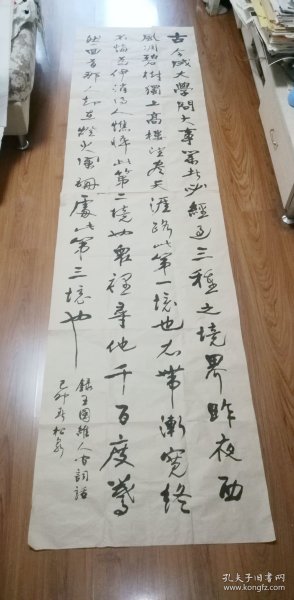 古今成大學問大事業者必經過三種之境界昨夜西
風凋碧樹獨上高樓望盡天涯路此第一境也衣帶漸寬終
不悔為伊消得人憔悴此第二境也衆裡尋他千百度驀
然回首那人却在燈火闌珊處此第三境也
錄王國維人間詞話
己卯
孔夫子旧书网
kongfz.com